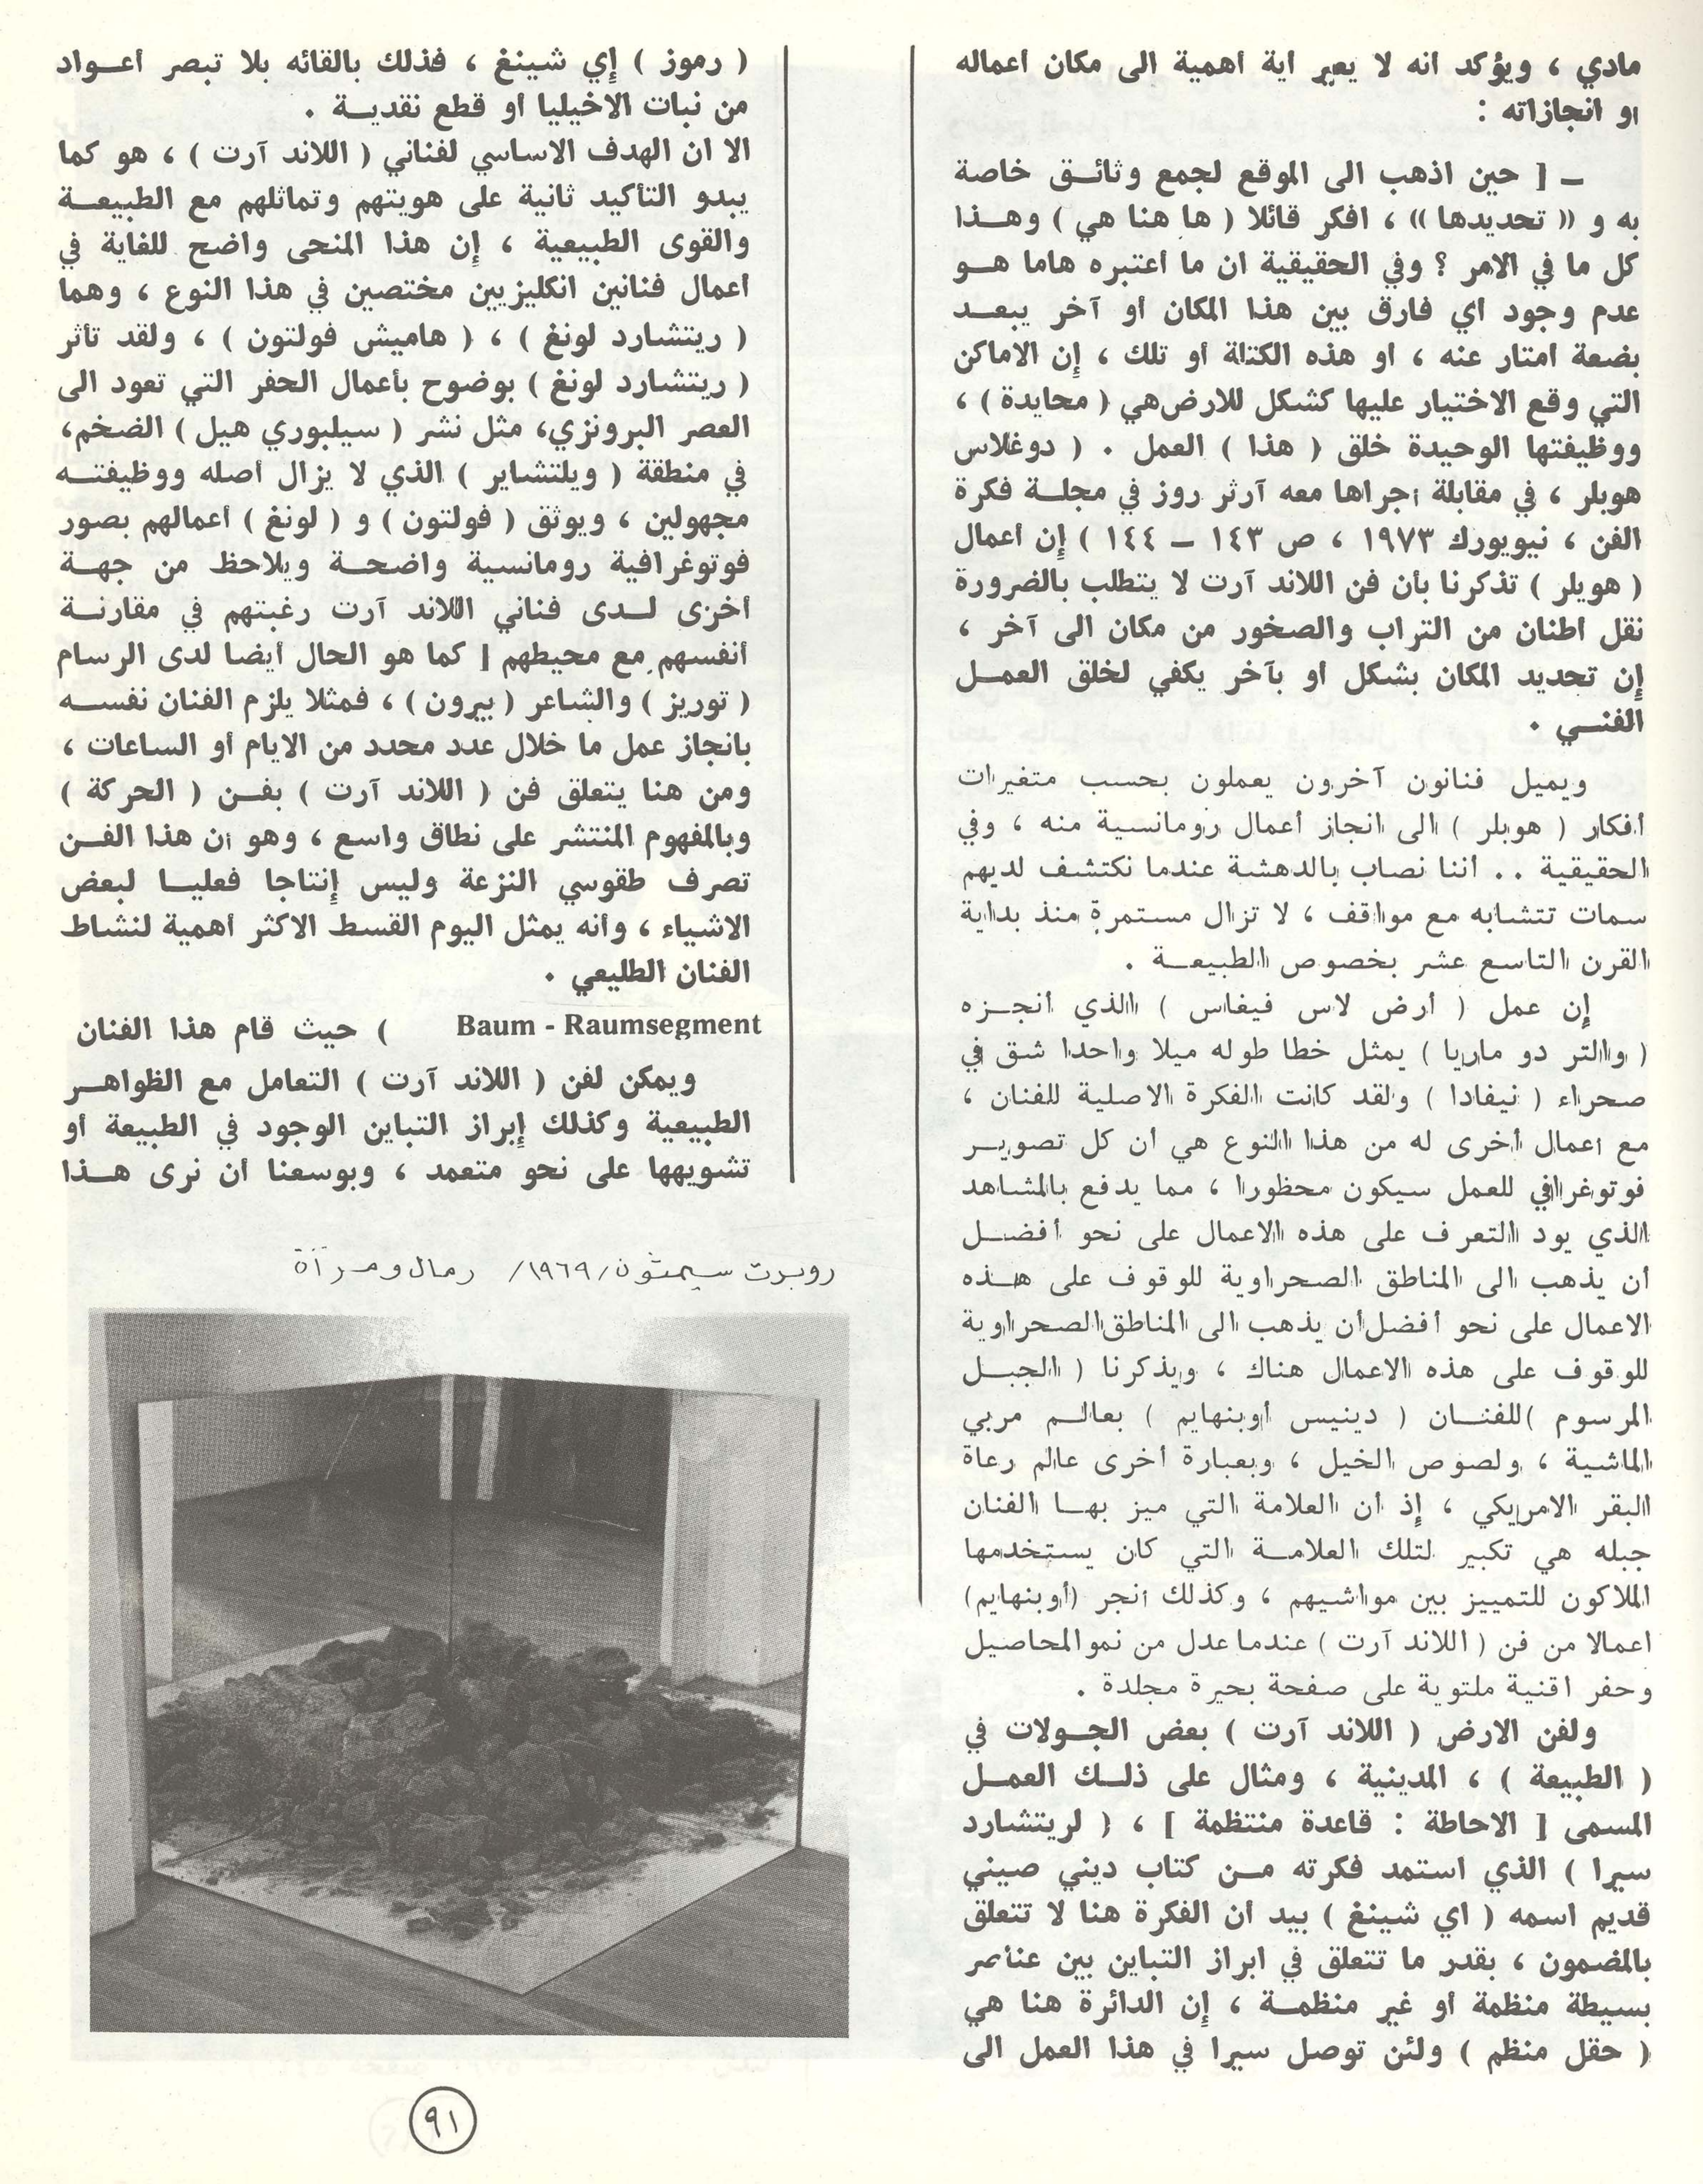 مادي ، ويؤكد انه لا يعير اية أهمية الى مكان أعماله
او انجازاته :
ـ [ حين اذهب الى الموقع لجمع وثائق خاصة
به و « تحديدها » ، افكر قائلا ( ها هنا هي ) وهذا
كل ما في الامر ؟ وفي الحقيقية ان ما أعتبره هاما هو
عدم وجود اي فارق بين هذا المكان أو آخر يبعد
بضعة امتار عنه ، او هذه الكتلة أو تلك ، إن الاماكن
التي وقع الاختيار عليها كشكل للارض هي ( محايدة ) ،
ووظيفتها الوحيدة خلق ( هذا ) العمل . ( دوغلاس
هوبلر ، في مقابلة أجراها معه آرثر روز في مجلة فكرة
الفن ، نيويورك ١٩٧٣ ، ص ١٤٣ ـ ١٤٤ ) إن أعمال
( هوبلر ) تذكرنا بأن فن اللاند آرت لا يتطلب بالضرورة
نقل اطنان من التراب والصخور من مكان الى آخر ،
إن تحديد المكان بشكل او بآخر يكفي لخلق العمل
الفني .
ويميل فنانون آخرون يعملون بحسب متغيرات
أفكار ( هوبلر ) الى انجاز أعمال رومانسية منه ، وفي
الحقيقية .. أننا نصاب بالدهشة عندما نكتشف لديهم
سمات تتشابه مع مواقف ، لا تزال مستمرة منذ بداية
القرن التاسع عشر بخصوص الطبيعة .
إن عمل ( أرض لاس فيغاس ) الذي أنجزه
( والتر دو ماريا ) يمثل خطا طوله ميلا واحدا شق في
صحراء ( نيفادا ) ولقد كانت الفكرة الاصلية للفنان ،
مع أعمال أخرى له من هذا النوع هي أن كل تصوير
فوتوغرافي للعمل سيكون محظورا ، مما يدفع بالمشاهد
الذي يود التعرف على هذه الاعمال على نحو أفضل
أن يذهب الى المناطق الصحراوية للوقوف على هذه
الاعمال على نحو أفضل أن يذهب الى المناطق الصحراوية
للوقوف على هذه الاعمال هناك ، ويذكرنا ( الجبل
المرسوم ) للفنان ( دينيس أوبنهايم ) بعالم مربي
الماشية ، ولصوص الخيل ، وبعبارة أخرى عالم رعاة
البقر الامريكي ، إذ أن العلامة التي ميز بها الفنان
جبله هي تكبير لتلك العلامة التي كان يستخدمها
الملاكون للتمييز بين مواشيهم ، وكذلك أنجر (أوبنهايم)
اعمالا من فن ( اللاند آرت ) عندما عدل من نمو المحاصيل
وحفر اقنية ملتوية على صفحة بحيرة مجلدة .
ولفن الارض ( اللاند آرت ) بعض الجولات في
( الطبيعة ) ، المدينية ، ومثال على ذلك العمل
المسمى [ الاحاطة : قاعدة منتظمة ] ، ( لريتشارد
سيرا ) الذي استمد فكرته من كتاب ديني صيني
قديم اسمه ( اي شينغ ) بيد ان الفكرة هنا لا تتعلق
بالمضمون ، بقدر ما تتعلق في ابراز التباين بين عناصر
بسيطة منظمة أو غير منظمة ، إن الدائرة هنا هي
( حقل منظم ) ولئن توصل سيرا في هذا العمل الى
( رموز ) إي شينغ ، فذلك بالقائه بلا تبصر أعواد
من نبات الاخيليا او قطع نقدية .
الا ان الهدف الاساسي لفناني ( اللاند آرت ) ، هو كما
يبدو التأكيد ثانية على هويتهم وتماثلهم مع الطبيعة
والقوى الطبيعية ، إن هذا المنحى واضح للغاية في
أعمال فنانين انكليزيين مختصين في هذا النوع ، وهما
( ريتشارد لونغ ) ، ( هاميش فولتون ) ، ولقد تأثر
( ريتشارد لونغ ) بوضوح بأعمال الحفر التي تعود الى
العصر البرونزي، مثل نشر ( سيلبوري هيل ) الضخم،
في منطقة ( ويلتشاير ) الذي لا يزال أصله ووظيفته
مجهولين ، ويوثق ( فولتون ) و ( لونغ ) أعمالهم بصور
فوتوغرافية رومانسية واضحة ويلاحظ من جهة
أخرى لدى فناني اللاند آرت رغبتهم في مقارنة
أنفسهم مع محيطهم [ كما هو الحال أيضا لدى الرسام
( توريز ) والشاعر ( بيرون ) ، فمثلا يلزم الفنان نفسه
بانجاز عمل ما خلال عدد محدد من الايام أو الساعات ،
ومن هنا يتعلق فن ( اللاند آرت ) بفن ( الحركة )
وبالمفهوم المنتشر على نطاق واسع ، وهو أن هذا الفن
تصرف طقوسي النزعة وليس إنتاجا فعليا لبعض
الاشياء ، وأنه يمثل اليوم القسط الاكثر أهمية لنشاط
الفنان الطليعي .
Baum - Raumsegment ) حيث قام هذا الفنان
ويمكن لفن ( اللاند آرت ) التعامل مع الظواهر
الطبيعية وكذلك إبراز التباين الوجود في الطبيعة أو
تشويهها على نحو متعمد ، وبوسعنا أن نرى هذا
روبرت سيمثون /١٩٦٩/ رمال ومرآة
٩١